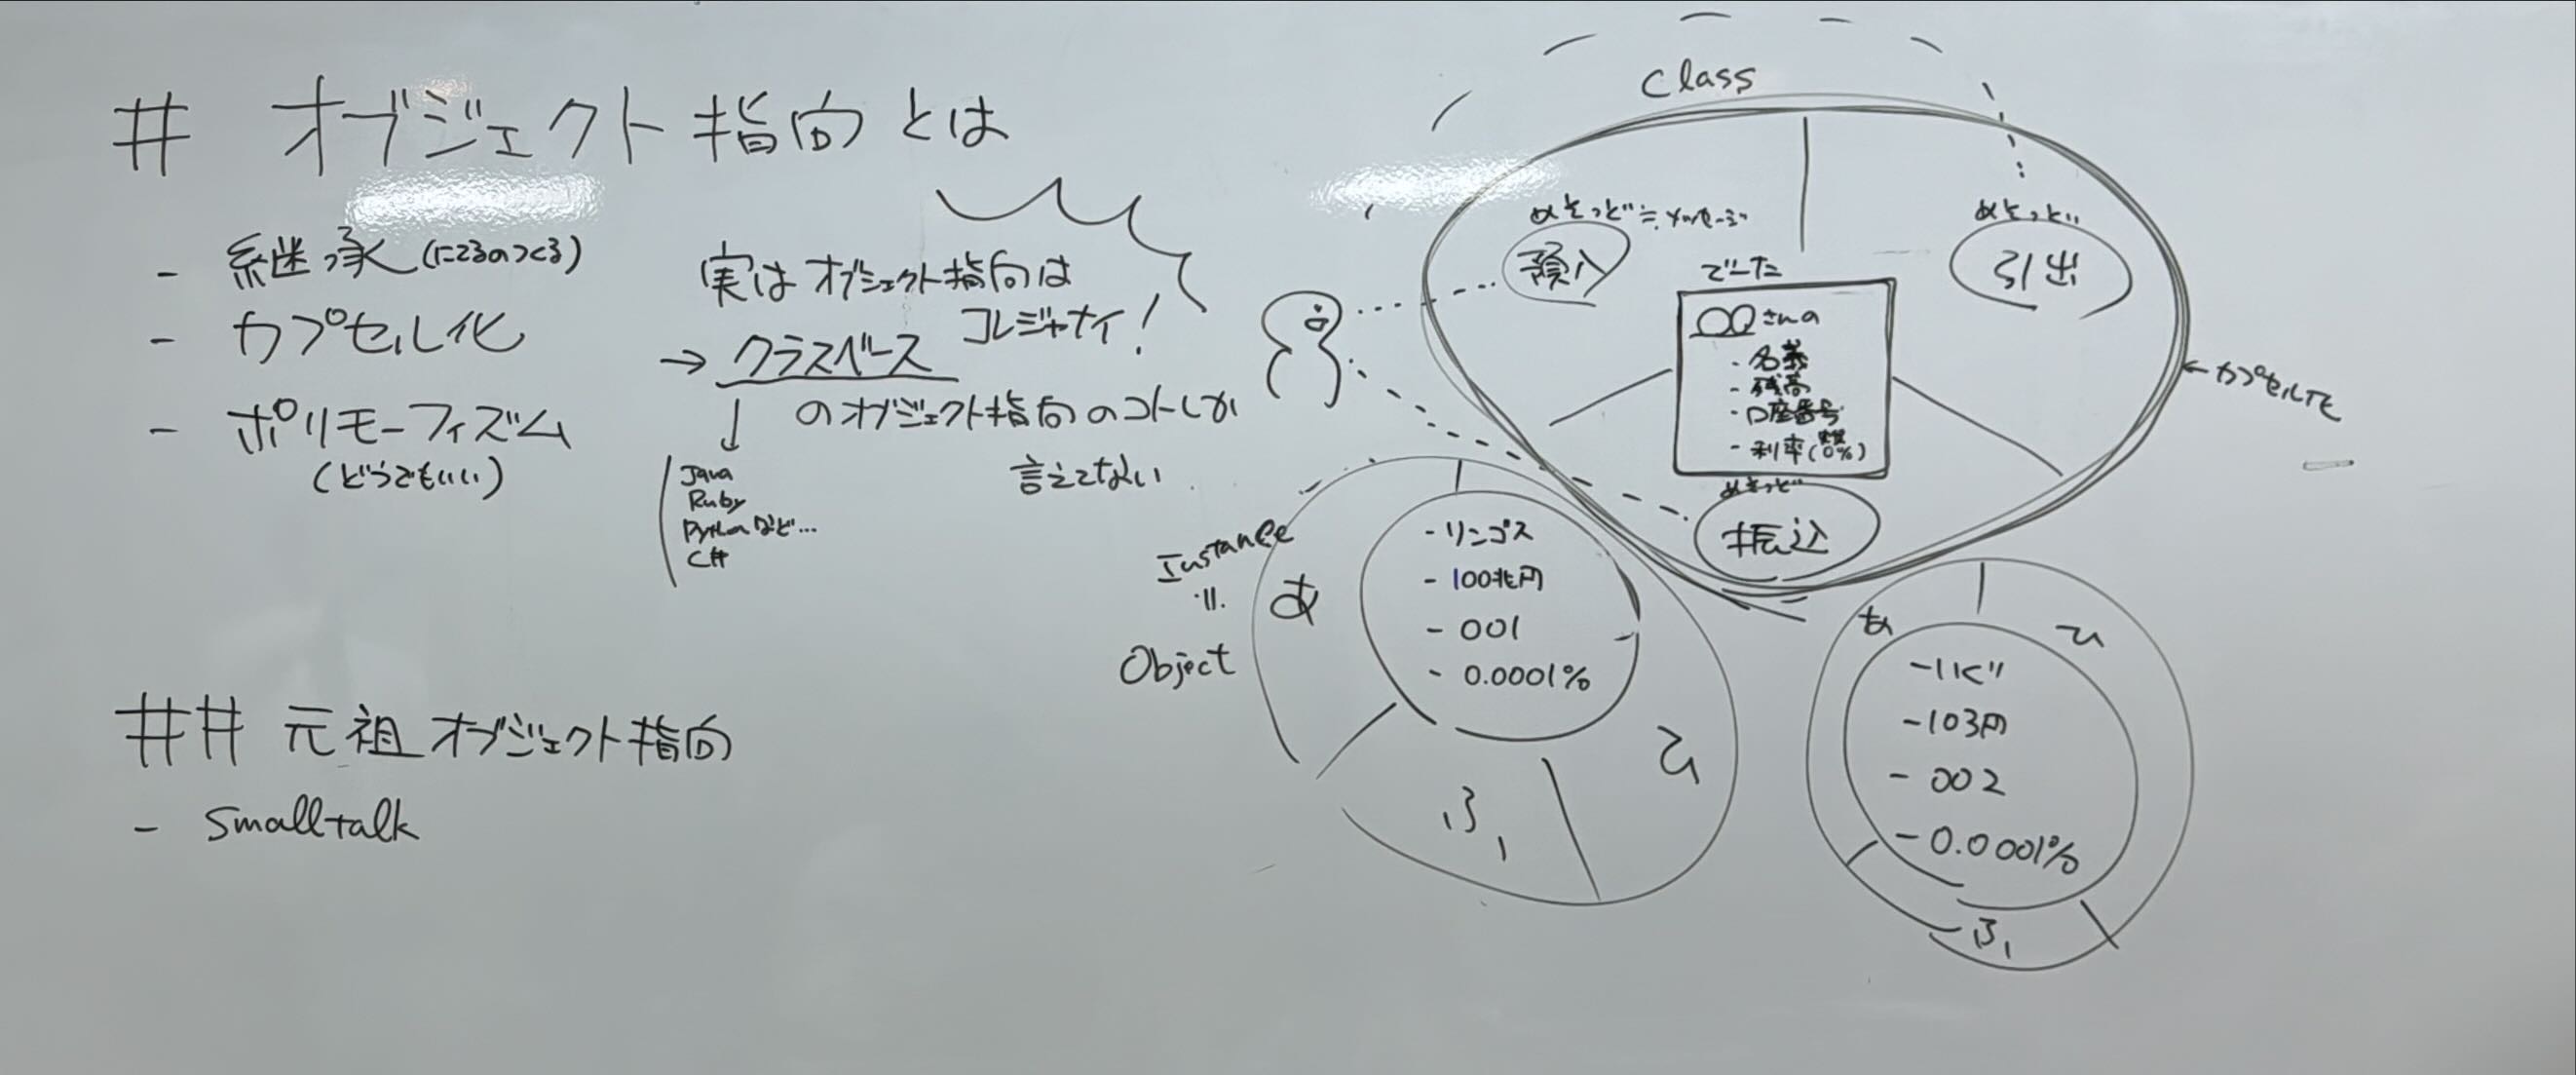 # オブジェクト指向とは
- 継承(にてるのつくる)
- カプセル化
- ポリモーフィズム
(どうでもいい)
実はオブジェクト指向は
コレジャナイ!
→ クラスベース
のオブジェクト指向のコトしか
言えてない
↓
Java
Ruby
Pythonなど...
C#
## 元祖オブジェクト指向
- Smalltalk
Class
めそっど≒メッセージ
預入
めそっど
引出
でーた
〇〇さんの
・名義
・残高
・口座番号
・利率(0%)
めそっど
振込
←カプセル化
Instance
=
Object
あ
- リンゴス
- 100兆円
- 001
- 0.0001%
ひ
ふ
あ
ひ
- 002
- 103円
- 0.0001%
ふ